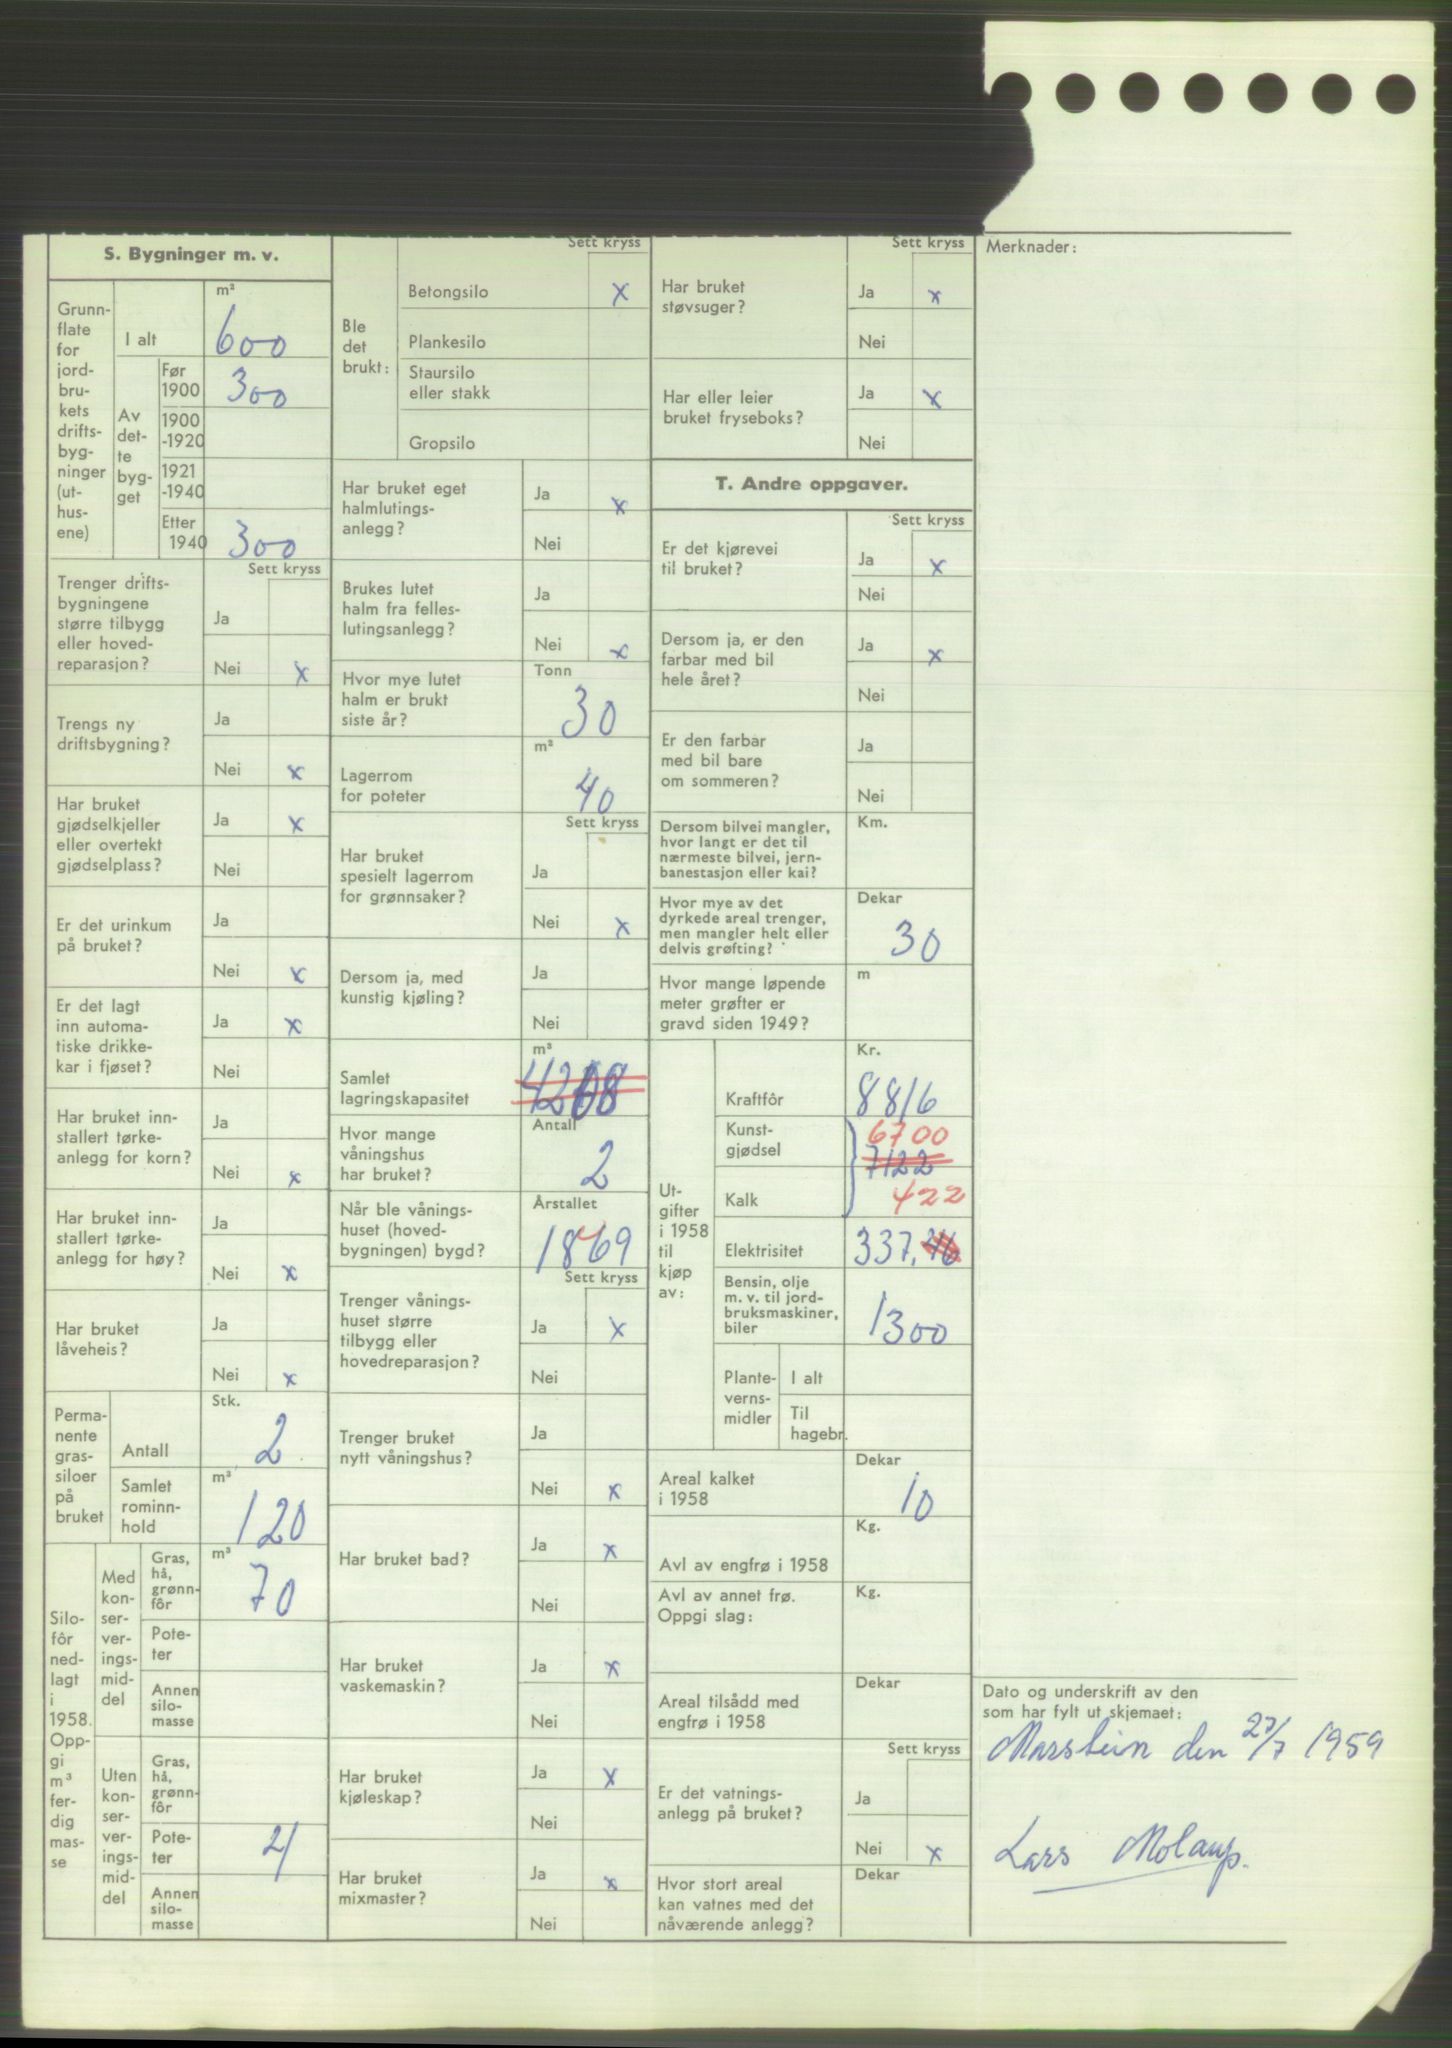 S. Bygninger m. v.
Grunn-
flate
for
jord-
bru-
kets
drifts-
byg-
ninger
(ut-
hus-
ene)
m²
I alt 600
Av
det-
te
byg-
get
Før
1900 300
1900
-1920
1921
-1940
Etter
1940 300
Sett kryss
Trenger drifts-
bygningene
større tilbygg
eller hoved-
reparasjon?
Ja
Nei x
Trengs ny
driftsbygning?
Ja
Nei x
Har bruket
gjødselkjeller
eller overtekt
gjødselplass?
Ja x
Nei
Er det urinkum
på bruket?
Ja
Nei x
Er det lagt
inn automa-
tiske drikke-
kar i fjøset?
Ja x
Nei
Har bruket inn-
stallert tørke-
anlegg for korn?
Ja
Nei x
Har bruket inn-
stallert tørke-
anlegg for høy?
Ja
Nei x
Har bruket
låveheis?
Ja
Nei x
Perma-
nente
gras-
siloer
på
bruket
Stk.
Antall 2
m³
Samlet
rominn-
hold 120
Silo-
fôr
ned-
lagt
i
1958.
Opp-
gi
m³
fer-
dig
mas-
se
Med
kon-
ser-
ver-
ings-
mid-
del
m³
Gras,
hå,
grønn-
fôr 70
Pote-
ter
Annen
silo-
masse
Uten
kon-
ser-
ver-
ings-
mid-
del
Gras,
hå,
grønn-
fôr
Pote-
ter 21
Annen
silo-
masse
Sett kryss
Ble
det
brukt:
Betongsilo x
Plankesilo
Staursilo
eller stakk
Gropsilo
Har bruket eget
halmlutings-
anlegg?
Ja x
Nei
Brukes lutet
halm fra felles-
lutingsanlegg?
Ja
Nei x
Hvor mye lutet
halm er brukt
siste år?
Tonn
30
Lagerrom
for poteter
m³
40
Sett kryss
Har bruket
spesielt lagerrom
for grønnsaker?
Ja
Nei x
Dersom ja, med
kunstig kjøling?
Ja
Nei
Samlet
lagringskapasitet
m³
Hvor mange
våningshus
har bruket?
Antall
2
Når ble vånings-
huset (hoved-
bygningen) bygd?
Årstallet
1869
Sett kryss
Trenger vånings-
huset større
tilbygg eller
hovedreparasjon?
Ja x
Nei
Trenger bruket
nytt våningshus?
Ja
Nei x
Har bruket bad?
Ja x
Nei
Har bruket
vaskemaskin?
Ja x
Nei
Har bruket
kjøleskap?
Ja x
Nei
Har bruket
mixmaster?
Ja x
Nei
Sett kryss
Har bruket
støvsuger?
Ja x
Nei
Har eller leier
bruket fryseboks?
Ja x
Nei
T. Andre oppgaver.
Sett kryss
Er det kjørevei
til bruket?
Ja x
Nei
Dersom ja, er den
farbar med bil
hele året?
Ja x
Nei
Er den farbar
med bil bare
om sommeren?
Ja
Nei
Dersom bilvei mangler,
hvor langt er det til
nærmeste bilvei, jern-
banestasjon eller kai?
Km.
Hvor mye av det
dyrkede areal trenger,
men mangler helt eller
delvis grøfting?
Dekar
30
Hvor mange løpende
meter grøfter er
gravd siden 1949?
m
Ut-
gifter
i 1958
til
kjøp
av:
Kr.
Kraftfôr 8816
Kunst-
gjødsel 6700
7122
Kalk 422
Elektrisitet 337,
Bensin, olje
m. v. til jord-
bruksmaskiner,
biler 1300
Plante-
verns-
midler
I alt
Til
hagebr.
Areal kalket
i 1958
Dekar
10
Avl av engfrø i 1958
Kg.
Avl av annet frø.
Oppgi slag:
Kg.
Areal tilsådd med
engfrø i 1958
Dekar
Sett kryss
Er det vatnings-
anlegg på bruket?
Ja
Nei x
Hvor stort areal
kan vatnes med det
nåværende anlegg?
Dekar
Merknader:
Dato og underskrift av den
som har fylt ut skjemaet:
Marstein den 27/7 1959
Lars